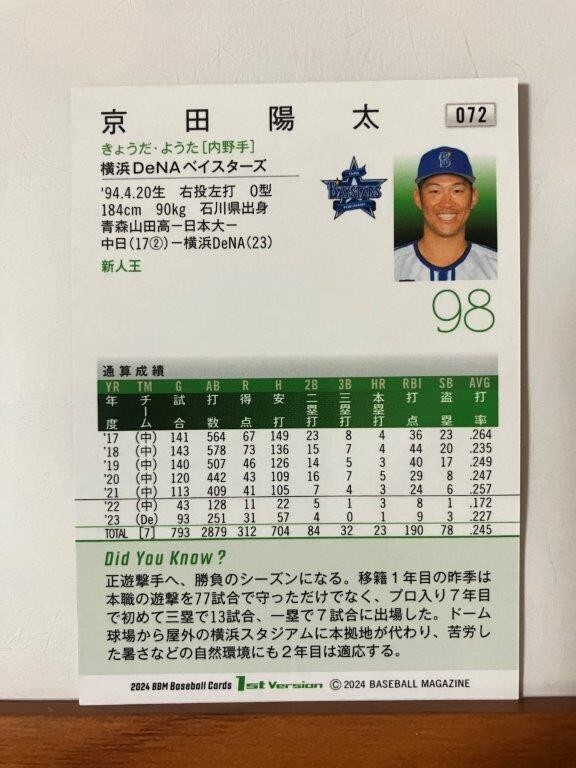 京田陽太
072
きょうだ・ようた[内野手]
横浜DeNAベイスターズ
'94.4.20生 右投左打 O型
184cm 90kg 石川県出身
青森山田高ー日本大ー
中日(17②)ー横浜DeNA(23)
新人王
BAYSTARS
B
98
通算成績
YR TM G AB R H 2B 3B HR RBI SB AVG
年度 チーム 試合 打数 得点 安打 二塁打 三塁打 本塁打 打点 盗塁 打率
'17 (中) 141 564 67 149 23 8 4 36 23 .264
'18 (中) 143 578 73 136 15 7 4 44 20 .235
'19 (中) 140 507 46 126 14 5 3 40 17 .249
'20 (中) 120 442 43 109 16 7 5 29 8 .247
'21 (中) 113 409 41 105 7 4 3 24 6 .257
'22 (中) 43 128 11 22 5 1 3 8 1 .172
'23 (De) 93 251 31 57 4 0 1 9 3 .227
TOTAL [7] 793 2879 312 704 84 32 23 190 78 .245
Did You Know?
正遊撃手へ、勝負のシーズンになる。移籍1年目の昨季は
本職の遊撃を77試合で守っただけでなく、プロ入り7年目
で初めて三塁で13試合、一塁で7試合に出場した。ドーム
球場から屋外の横浜スタジアムに本拠地が代わり、苦労し
た暑さなどの自然環境にも2年目は適応する。
2024 BBM Baseball Cards 1st Version © 2024 BASEBALL MAGAZINE